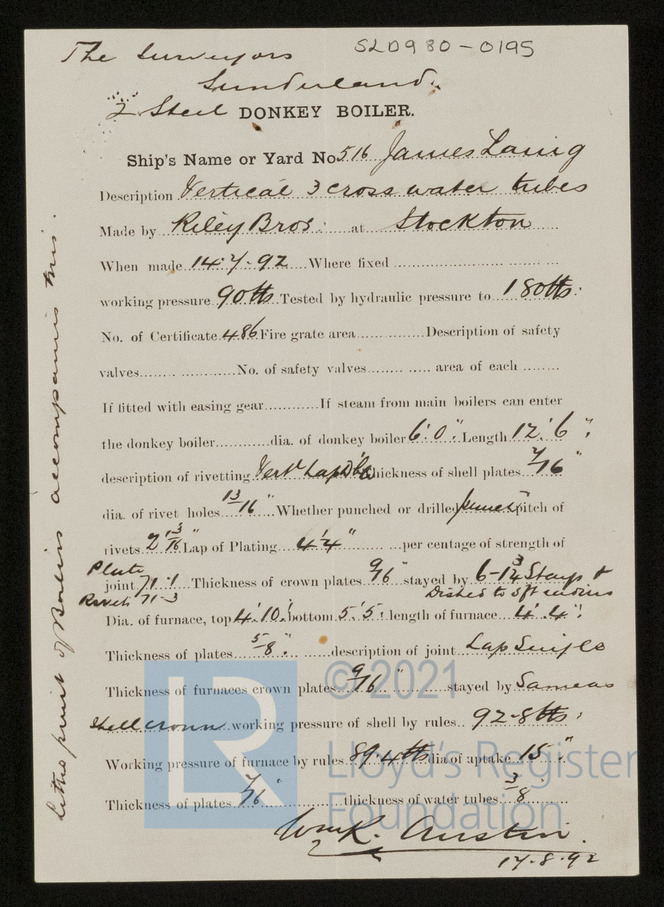 The Surveyors
SLD980-0195
Sunderland.
2 Steel DONKEY BOILER.
Ship's Name or Yard No 516 James Laing
Description Vertical 3 cross water tubes
Made by Riley Bros. at Stockton
When made 14.7.92 Where fixed
working pressure 90 lbs Tested by hydraulic pressure to 180 lbs.
No. of Certificate 486 Fire grate area Description of safety
valves No. of safety valves area of each
If fitted with easing gear If steam from main boilers can enter
the donkey boiler dia. of donkey boiler 6'.0". Length 12'.6".
description of rivetting Vertl Lap Dble thickness of shell plates 7/16"
dia. of rivet holes 13/16" Whether punched or drilled punch pitch of
rivets 2 13/16" Lap of Plating 4 1/4" per centage of strength of
Plate
joint 71.1 Thickness of crown plates 9/16" stayed by 6-1 3/4 Stays &
Rivets 71.3 Dished to 5ft radius
Dia. of furnace, top 4'.10". bottom 5'.5". length of furnace 4'.4".
Thickness of plates 5/8". description of joint Lap Single
Thickness of furnaces crown plates 9/16" stayed by Same as
Shell crown. working pressure of shell by rules 92.8 lbs.
Working pressure of furnace by rules 89.4 lbs dia of uptake 15".
Thickness of plates 7/16" thickness of water tubes 3/8
Wm K. Austin.
17.8.92
litho print of Boilers accompanies this.
LR
© 2021
Lloyd's Register
Foundation